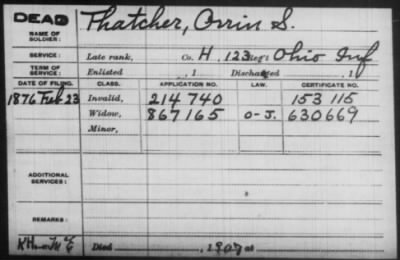 DEAD Thatcher, Orrin S.
NAME OF SOLDIER:
SERVICE: Late rank, Co. H. 123 Reg't Ohio Inf
TERM OF SERVICE: Enlisted , 1 Discharged , 1
DATE OF FILING. CLASS. APPLICATION NO. LAW. CERTIFICATE NO.
1876 Feb 23 Invalid, 214 740 153 115
Widow, 867165 O-J. 630669
Minor,
ADDITIONAL SERVICES:
REMARKS:
Died , 190 at